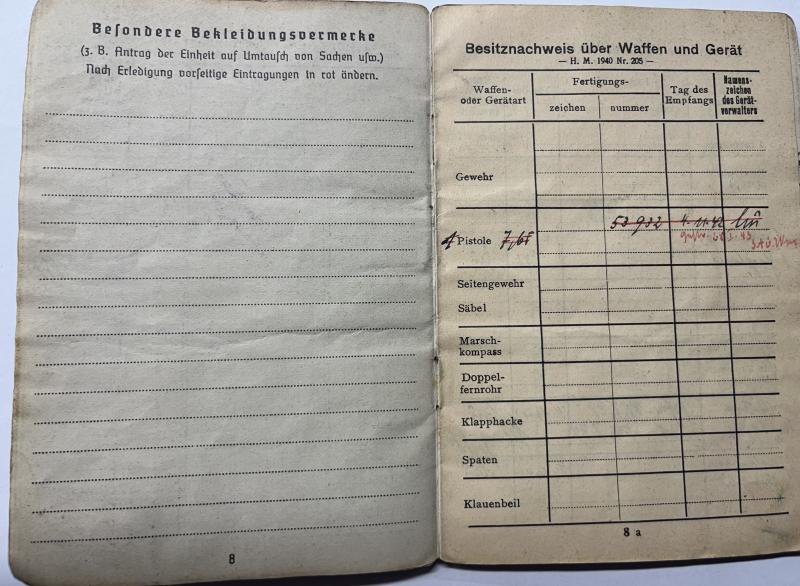 Besondere Bekleidungsvermerke
(z. B. Antrag der Einheit auf Umtausch von Sachen usw.)
Nach Erledigung vorseitige Eintragungen in rot ändern.
8
Besitznachweis über Waffen und Gerät
— H. M. 1940 Nr. 205 —
Waffen- oder Gerätart
Fertigungs-
zeichen
nummer
Tag des Empfangs
Namens- zeichen des Gerät- verwalters
Gewehr
1 Pistole 7,65 53 932 4.11.42
Seitengewehr
Säbel
Marsch-
kompass
Doppel-
fernrohr
Klapphacke
Spaten
Klauenbeil
8 a